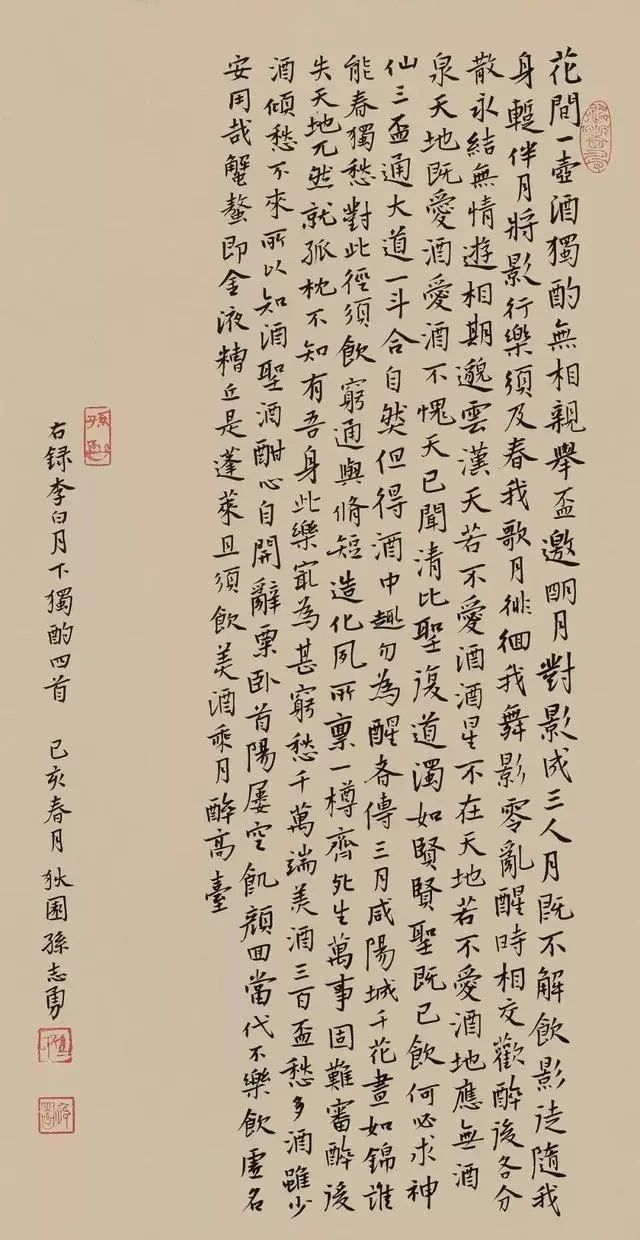 花間一壺酒獨酌無相親舉盃邀明月對影成三人月既不解飲影徒隨我
身蹔伴月將影行樂須及春我歌月徘徊我舞影零亂醒時相交歡醉後各分
散永結無情遊相期邈雲漢天若不愛酒酒星不在天地若不愛酒地應無酒
泉天地既愛酒愛酒不愧天已聞清比聖復道濁如賢賢聖既已飲何必求神
仙三盃通大道一斗合自然但得酒中趣勿為醒者傳三月咸陽城千花晝如錦誰
能春獨愁對此徑須飲窮通與脩短造化夙所稟一樽齊死生萬事固難審醉後
失天地兀然就孤枕不知有吾身此樂冣為甚窮愁千萬端美酒三百盃愁多酒雖少
酒傾愁不來所以知酒聖酒酣心自開辭粟臥首陽屢空飢顏回當代不樂飲虛名
安用哉蟹螯即金液糟丘是蓬萊且須飲美酒乘月醉高臺
右録李白月下獨酌四首 己亥春月狄園孫志勇